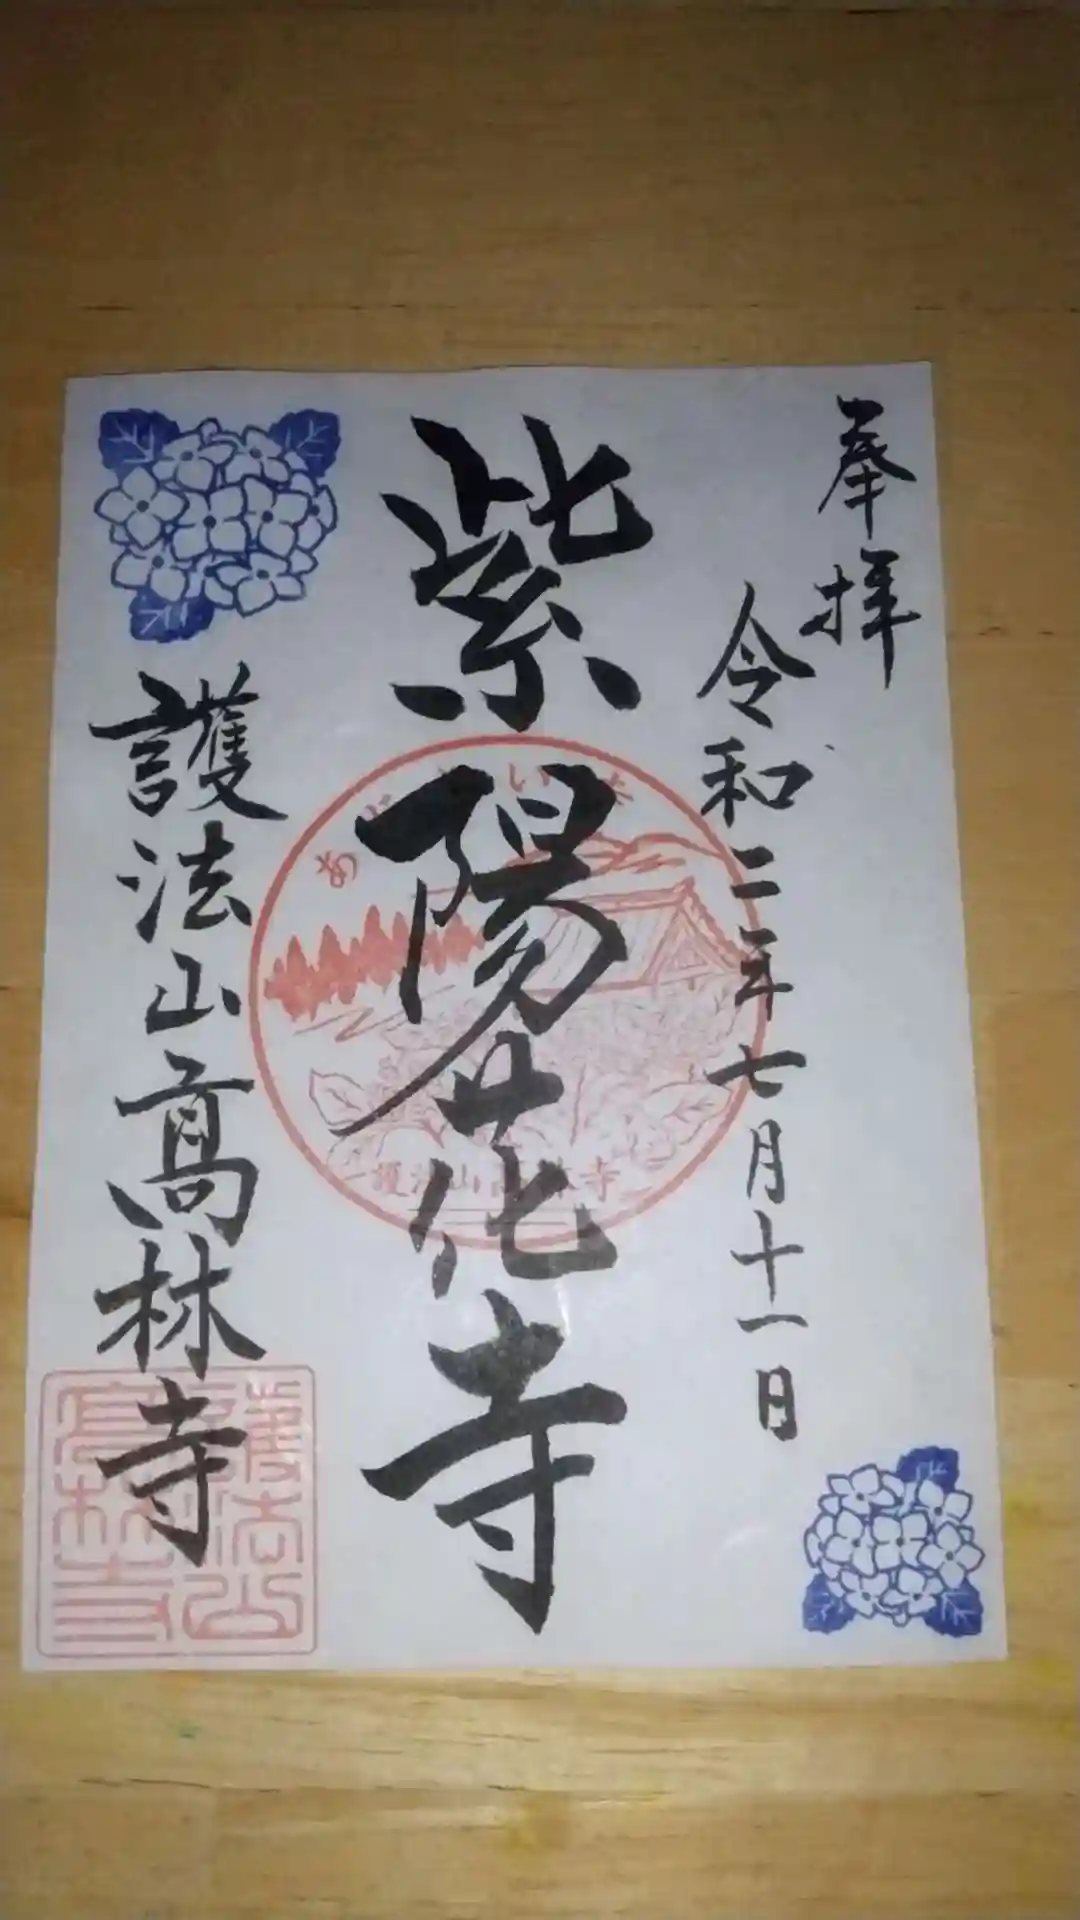 奉拝
令和二年七月十一日
紫陽花寺
護法山高林寺
護法山高林寺
護法山
高林寺